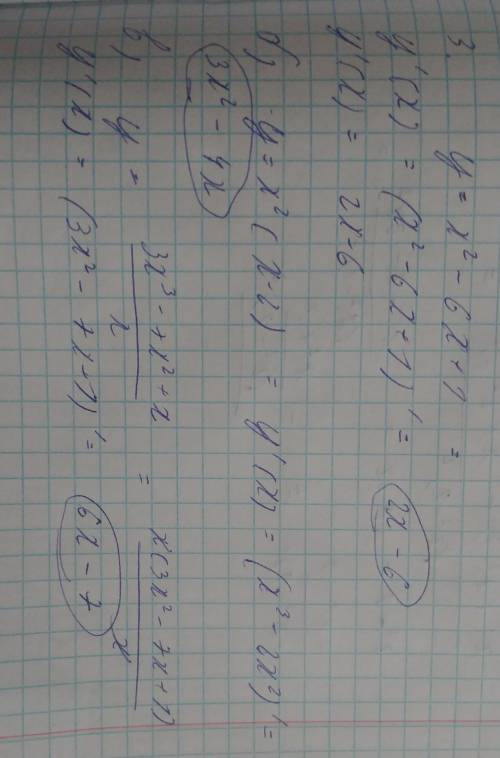 3. y = x² - 6x + 1 =
y'(x) = (x² - 6x + 1)' = 2x - 6
y'(x) = 2x - 6
б) y = x² (x - 2) = y'(x) = (x³ - 2x²)' =
3x² - 4x
в) y = 3x³ - 7x² + x / x = x(3x² - 7x + 1) / x
y'(x) = (3x² - 7x + 1)' = 6x - 7